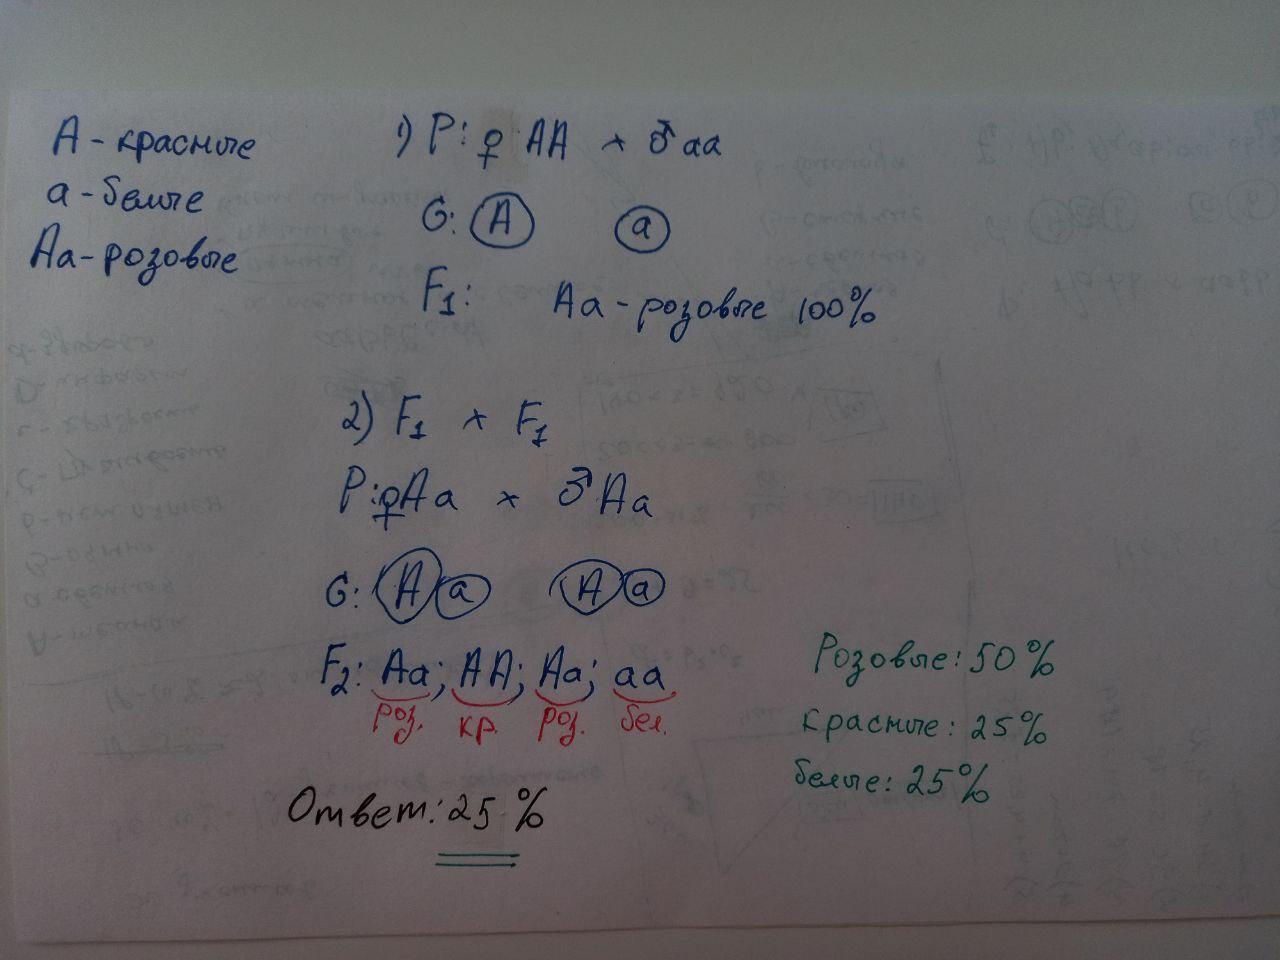 A - красные
a - белые
Aa - розовые
1) P: ♀ AA × ♂ aa
G: A a
F₁: Aa - розовые 100%
2) F₁ × F₁
P: ♀Aa × ♂ Aa
G: A a A a
F₂: Aa; AA; Aa; aa
роз. кр. роз. бел.
Розовые: 50 %
красные: 25%
белые: 25%
Ответ: 25 %